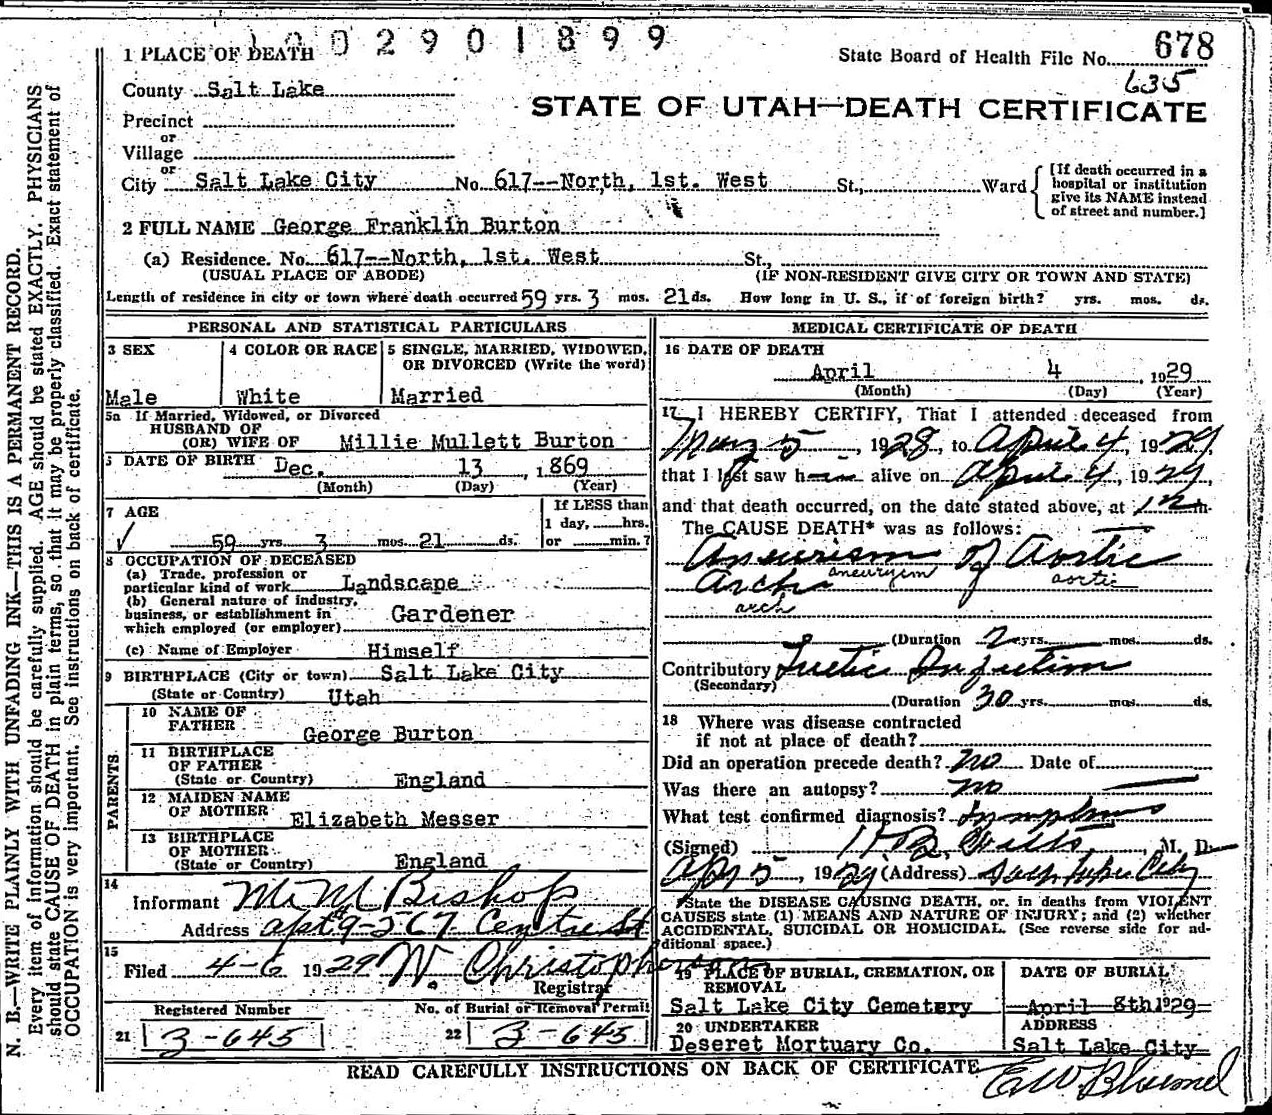 1002901899
1 PLACE OF DEATH
State Board of Health File No. 678
635
County Salt Lake
STATE OF UTAH—DEATH CERTIFICATE
Precinct
or
Village
or
City Salt Lake City No. 617--North, 1st. West St., Ward
[If death occurred in a hospital or institution give its NAME instead of street and number.]
2 FULL NAME George Franklin Burton
(a) Residence. No. 617--North, 1st. West St.,
(USUAL PLACE OF ABODE) (IF NON-RESIDENT GIVE CITY OR TOWN AND STATE)
Length of residence in city or town where death occurred 59 yrs. 3 mos. 21 ds. How long in U. S., if of foreign birth? yrs. mos. ds.
PERSONAL AND STATISTICAL PARTICULARS
3 SEX
Male
4 COLOR OR RACE
White
5 SINGLE, MARRIED, WIDOWED,
OR DIVORCED (Write the word)
Married
5a If Married, Widowed, or Divorced
HUSBAND OF
(OR) WIFE OF Millie Mullett Burton
DATE OF BIRTH Dec. 13 1869
(Month) (Day) (Year)
7 AGE
59 yrs. 3 mos. 21 ds.
If LESS than
1 day, hrs.
or min.?
8 OCCUPATION OF DECEASED
(a) Trade, profession or
particular kind of work Landscape
(b) General nature of industry,
business, or establishment in
which employed (or employer) Gardener
(c) Name of Employer Himself
9 BIRTHPLACE (City or town) Salt Lake City
(State or Country) Utah
PARENTS
10 NAME OF
FATHER George Burton
11 BIRTHPLACE
OF FATHER
(State or Country) England
12 MAIDEN NAME
OF MOTHER Elizabeth Messer
13 BIRTHPLACE
OF MOTHER
(State or Country) England
14
Informant M M Bishop
Address apt #9-567 Centre St
15
Filed 4-6 1929 W. Christopherson
Registrar
Registered Number No. of Burial or Removal Permit
21 3-645 22 3-645
MEDICAL CERTIFICATE OF DEATH
16 DATE OF DEATH
April 4, 1929
(Month) (Day) (Year)
17 I HEREBY CERTIFY, That I attended deceased from
5, 1928, to April 4, 1929,
that I last saw him alive on April 4, 1929,
and that death occurred, on the date stated above, at m.
The CAUSE DEATH* was as follows:
Aneurism of Aortic
Arch aneurysm aortic
arch
(Duration 2 yrs. mos. ds.
Contributory Luetic Infection
(Secondary)
(Duration 30 yrs. mos. ds.
18 Where was disease contracted
if not at place of death?
Did an operation precede death? no Date of
Was there an autopsy? no
What test confirmed diagnosis? Symptoms
(Signed) M. D.
Apr 5, 1929 (Address) City
*State the DISEASE CAUSING DEATH, or, in deaths from VIOLENT
CAUSES state (1) MEANS AND NATURE OF INJURY; and (2) whether
ACCIDENTAL, SUICIDAL OR HOMICIDAL. (See reverse side for ad-
ditional space.)
19 PLACE OF BURIAL, CREMATION, OR
REMOVAL
Salt Lake City Cemetery
DATE OF BURIAL
April 8th 1929
20 UNDERTAKER
Deseret Mortuary Co.
ADDRESS
Salt Lake City
READ CAREFULLY INSTRUCTIONS ON BACK OF CERTIFICATE
N. B.—WRITE PLAINLY WITH UNFADING INK—THIS IS A PERMANENT RECORD.
Every item of information should be carefully supplied. AGE should be stated EXACTLY. PHYSICIANS
should state CAUSE OF DEATH in plain terms, so that it may be properly classified. Exact statement of
OCCUPATION is very important. See instructions on back of certificate.